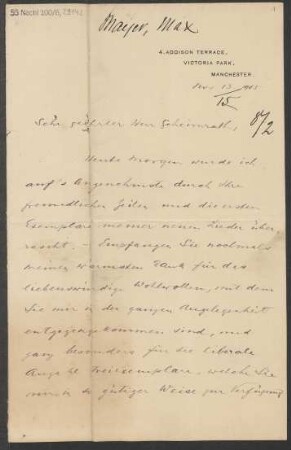 Mayer, Max
4, ADDISON TERRACE,
VICTORIA PARK,
MANCHESTER.
Nov. 13
Sehr geehrter Herr Geheimrath,
Heute Morgen wurde ich
auf's Angenehmste durch Ihre
freundlichen Zeilen und die
Exemplare meiner neuen Lieder über-
rascht. - Empfangen Sie nochmals
meinen wärmsten Dank für das
liebenswürdige Wohlwollen, mit dem
Sie mir in der ganzen Angelegenheit
entgegengekommen sind, und
ganz besonders für die liberale
Anzahl Freiexemplare, welche Sie
mir in so gütiger Weise zur Verfügung